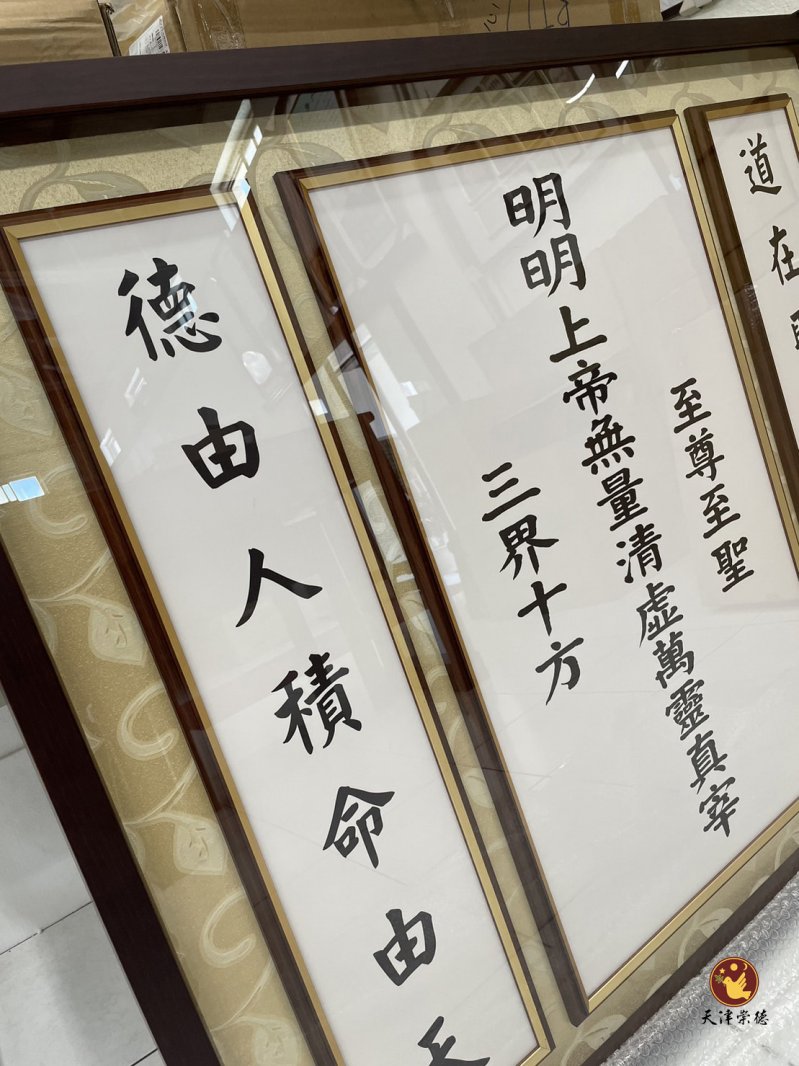 道在
至尊至聖
明明上帝無量清虛萬靈真宰
三界十方
德由人積命由天
天津崇德